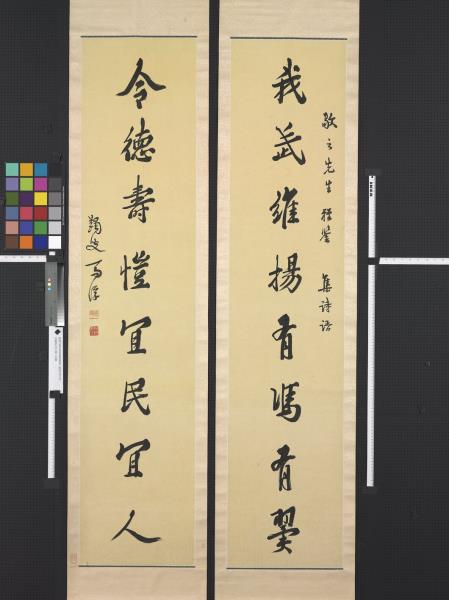 我武維揚有馮有翼
敬之先生雅鑒 集詩語
令德壽愷宜民宜人
蠲叟馬浮